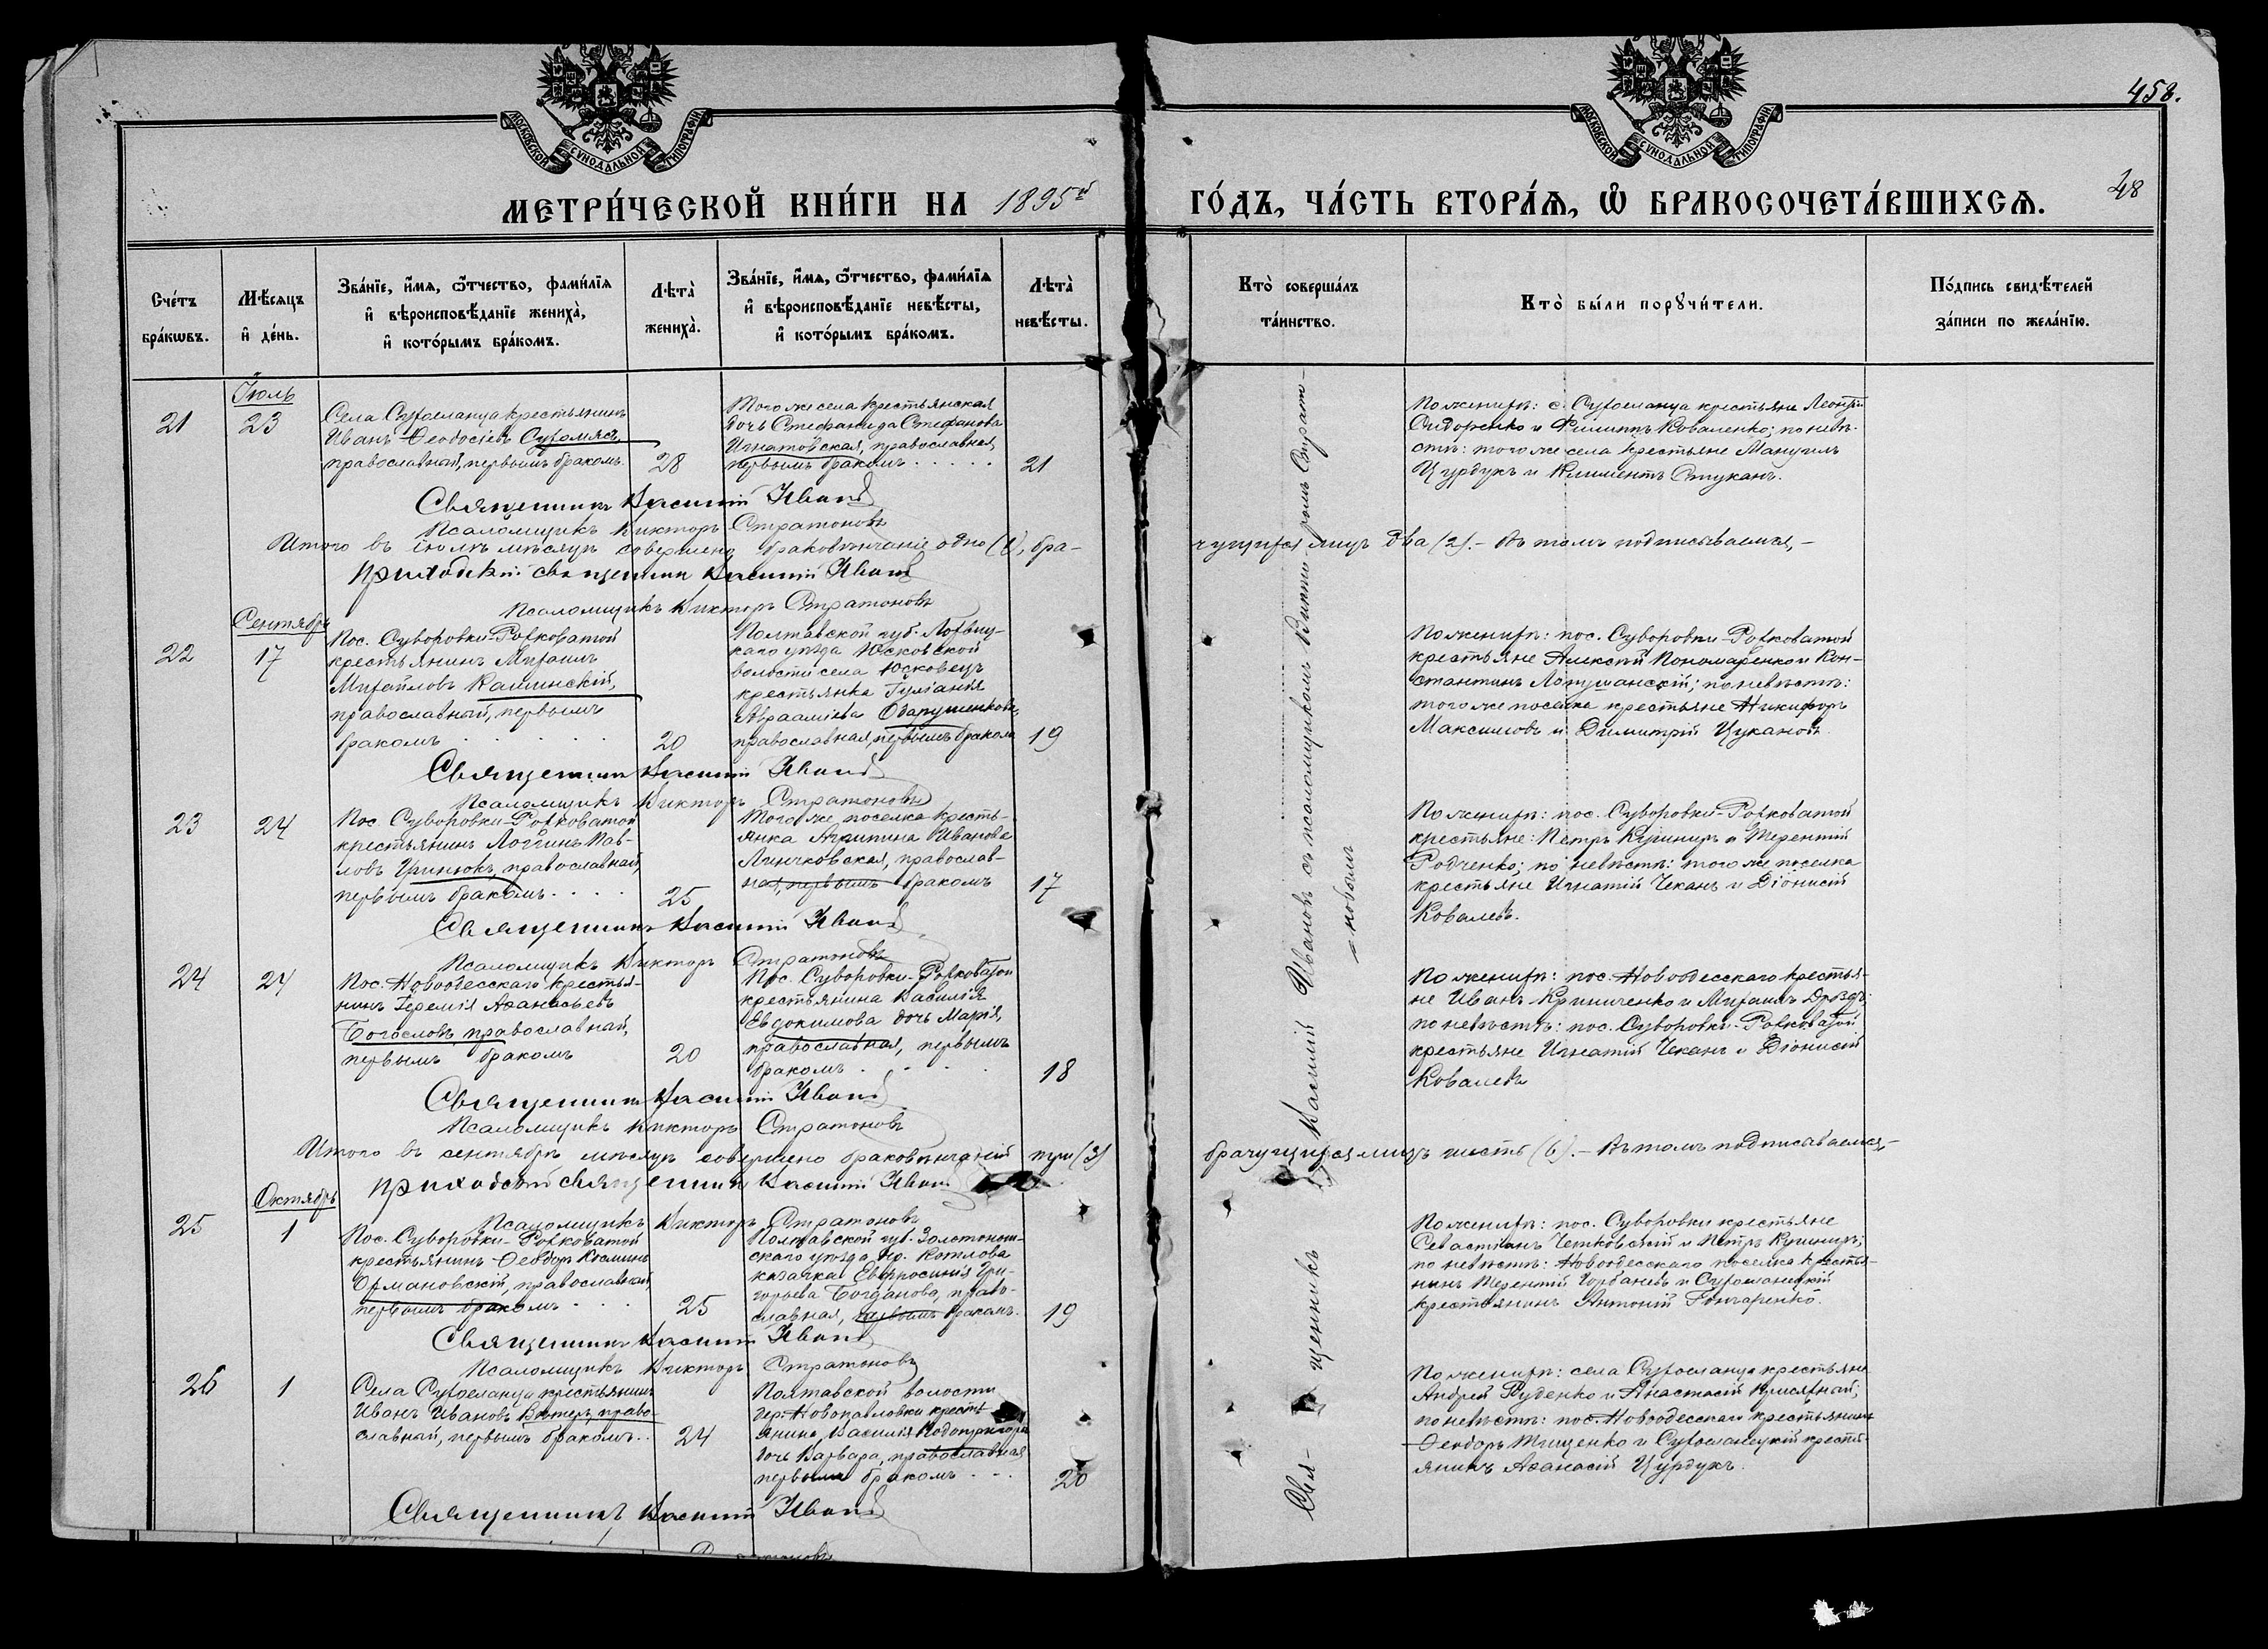 458.
МОСКОВСКОЙ СѴНОДАЛЬНОЙ ТИПОГРАФІИ
МОСКОВСКОЙ СѴНОДАЛЬНОЙ ТИПОГРАФІИ
МЕТРИ́ЧЕСКОЙ КНИ́ГИ НА 1895й ГО́ДЪ, ЧА́СТЬ ВТОРА́Я, Ѽ БРАКОСОЧЕТА́ВШИХСЯ.
48
Сче́тъ бра́кωвъ.
Мѣ́сяцъ и҆ де́нь.
Зва́нїе, и҆́мя, ѻ҆́тчество, фами́лїя
и҆ вѣроисповѣ́данїе жениха̀,
и҆ кото́рымъ бра́комъ.
Лѣта̀ жениха̀.
Зва́нїе, и҆́мя, ѻ҆́тчество, фами́лїя
и҆ вѣроисповѣ́данїе невѣ́сты,
и҆ кото́рымъ бра́комъ.
Лѣта̀ невѣ́сты.
Кто̀ соверша́лъ та́инство.
Кто̀ бы́ли порꙋчи́тели.
По́дпись свидѣ́телей за́писи по жела́нїю.
Іюль
21
23
Села Сухоеланца крестьянинъ
Иванъ Ѳеодосіевъ
православный, первымъ бракомъ.
28
Того же села крестьянская
дочь Стефанида Стефанова
Игнатовская, православная,
первымъ бракомъ . . . . .
21
По женихѣ: с. Сухоеланца крестьяне Леонтій
Сидоренко и Филиппъ Коваленко; по невѣ-
стѣ: того же села крестьяне Мануилъ
Цурдукъ и Климентъ Стуканъ.
Священникъ Василій Ивановъ
Псаломщикъ Викторъ Стратоновъ
Итого въ іюлѣ мѣсяцѣ совершено браковѣнчаніе одно (1), бра-
чущихся лицъ два (2). – Въ томъ подписываемся, –
Приходскій священникъ Василій Ивановъ
Псаломщикъ Викторъ Стратоновъ
Сентябрь
22
17
Пос. Суворовки-Рогковатой
крестьянинъ Михаилъ
Михайловъ Калинскій,
православный, первымъ
бракомъ . . . . .
20
Полтавской губ. Лохвиц-
каго уѣзда Юсковской
волости села Юсковецъ
крестьянка Іуліанія
Авраамiева
православная, первымъ бракомъ
19
По женихѣ: пос. Суворовки-Рогковатой
крестьяне Алексѣй Пономаренко и Кон-
стантинъ Лопушанскій; по невѣстѣ:
того же поселка крестьяне Никифоръ
Максимовъ и Димитрій Цукановъ.
Священникъ Василій Ивановъ
Псаломщикъ Викторъ Стратоновъ
23
24
Пос. Суворовки-Рогковатой
крестьянинъ Логгинъ Пав-
ловъ Гринюкъ, православный,
первымъ бракомъ. . . .
25
Того же поселка кресть-
янка Агрипина Иванова
Линчковская, православ-
ная, первымъ бракомъ
17
По женихѣ: пос. Суворовки-Рогковатой
крестьяне: Петръ Кушниръ и Терентій
Родченко; по невѣстѣ: того же поселка
крестьяне Игнатій Чеканъ и Діонисій
Ковалевъ.
Священникъ Василій Ивановъ
Псаломщикъ Викторъ Стратоновъ
24
24
Пос. Новоодесскаго крестья-
нинъ Іеремія Аѳанасьевъ
Богословъ, православный,
первымъ бракомъ
20
Пос. Суворовки-Рогковатой
крестьянина Василія
Евдокимова дочь Марія,
православная, первымъ
бракомъ . . . .
18
По женихѣ: пос. Новоодесскаго крестья-
не Иванъ Криниченко и Михаилъ Дроздъ;
по невѣстѣ: пос. Суворовки-Рогковатой
крестьяне Игнатій Чеканъ и Діонисій
Ковалевъ
Священникъ Василій Ивановъ
Псаломщикъ Викторъ Стратоновъ
Итого въ сентябрѣ мѣсяцѣ совершено браковѣнчаній три (3)
брачущихся лицъ шесть (6). – Въ томъ подписываемся, –
Приходскій священникъ Василій Ивановъ
Псаломщикъ Викторъ Стратоновъ
Октябрь
25
1
Пос. Суворовки-Рогковатой
крестьянинъ Ѳеодоръ Косминъ
Охмановскій, православный,
первымъ бракомъ . . .
25
Полтавской губ. Золотонош-
скаго уѣзда, Котлова
казачка Евфросинія Гри-
горьева Богданова, право-
славная, первымъ бракомъ.
19
По женихѣ: пос. Суворовки крестьяне
Севастіанъ Четковскій и Петръ Кушниръ;
по невѣстѣ: Новоодесскаго поселка крестья-
нинъ Терентій Горбаневъ и Сухоеланецкій
крестьянинъ Антоній Гончаренко.
Священникъ Василій Ивановъ
Псаломщикъ Викторъ Стратоновъ
26
1
Села Сухоеланца крестьянинъ
Иванъ Ивановъ право-
славный, первымъ бракомъ. .
24
Полтавской волости
дер. Новопавловки кресть-
янина Василія Подопригора
дочь Варвара, православная
первымъ бракомъ . . .
20
По женихѣ: села Сухоеланца крестьяне
Андрей Руденко и Анастасій Присяжный;
по невѣстѣ: пос. Новоодесскаго крестьянинъ
Ѳеодоръ Тищенко и Сухоеланецкій кресть-
янинъ Аѳанасій Цурдукъ.
Священникъ Василій Ивановъ
Свя-щенникъ Василій Ивановъ съ псаломщикомъ Викто-ромъ Страто-
– новымъ